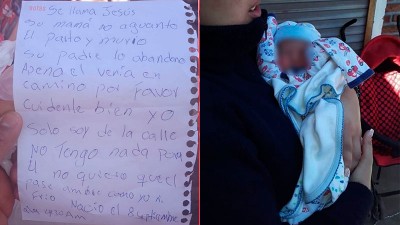 Se llama Jesús
Su mamá no aguanto
El parto y murio
Su padre lo abandono
Apena el venia en
camino por favor
Cuidenle bien yo
Solo soy de la calle
No Tengo nada para
El no quiero que el
pase ambre como yo x
Nacio el 8 septiembre